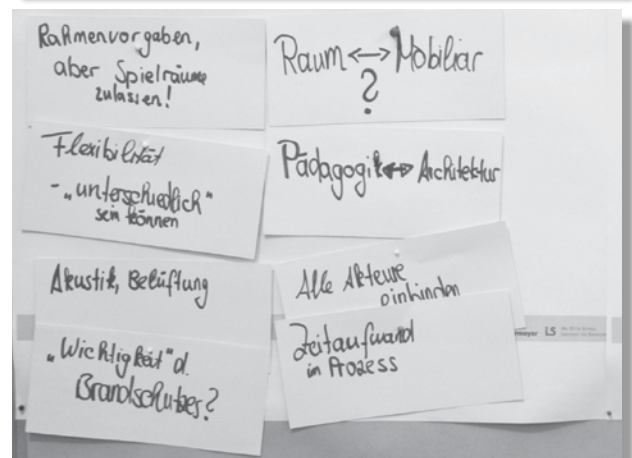 Rahmenvorgaben,
aber Spielräume
zulassen!
Flexibilität
- „unterschiedlich"
sein können
Akustik, Belüftung
„Wichtigkeit" d.
Brandschutzes?
Raum ↔ Mobiliar
?
Pädagogik ↔ Architektur
Alle Akteure
einbinden
Zeitaufwand
in Prozess
meyer LS